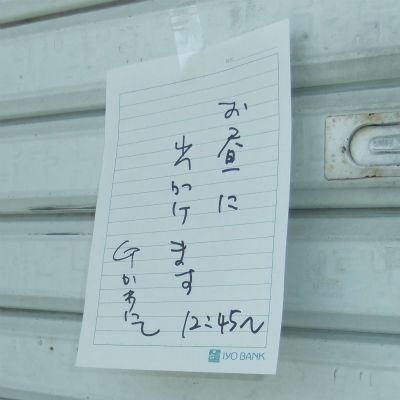 お昼に
出かけます
12:45〜
IYO BANK